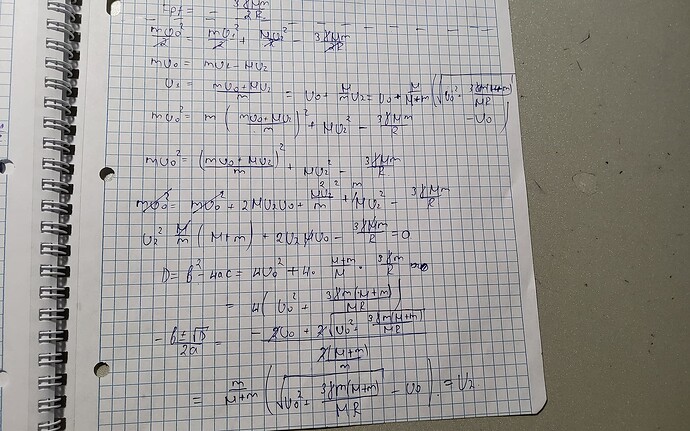 -Pf = - 3γMm/2R
mυ₀²/2 = mυ₁²/2 + Mυ₂²/2 - 3γMm/2R
mυ₀ = mυ₁ - Mυ₂
υ₁ = (mυ₀ + Mυ₂)/m = υ₀ + M/m υ₂ = υ₀ + M/(M+m) (√(υ₀² + 3γm(M+m)/MR) - υ₀)
mυ₀² = m ((mυ₀ + Mυ₂)/m)² + Mυ₂² - 3γMm/R
mυ₀² = (mυ₀ + Mυ₂)²/m + Mυ₂² - 3γMm/R
mυ₀² = mυ₀² + 2Mυ₂υ₀ + M²υ₂²/m + Mυ₂² - 3γMm/R
υ₂² M/m (M+m) + 2υ₂Mυ₀ - 3γMm/R = 0
D = b² - 4ac = 4υ₀² + 4 · (M+m)/M · 3γm/R
= 4(υ₀² + 3γm(M+m)/MR)
-b±√D/2a = (-2υ₀ + 2√(υ₀² + 3γm(M+m)/MR))/(2(M+m)/m)
= m/(M+m) (√(υ₀² + 3γm(M+m)/MR) - υ₀) = υ₂